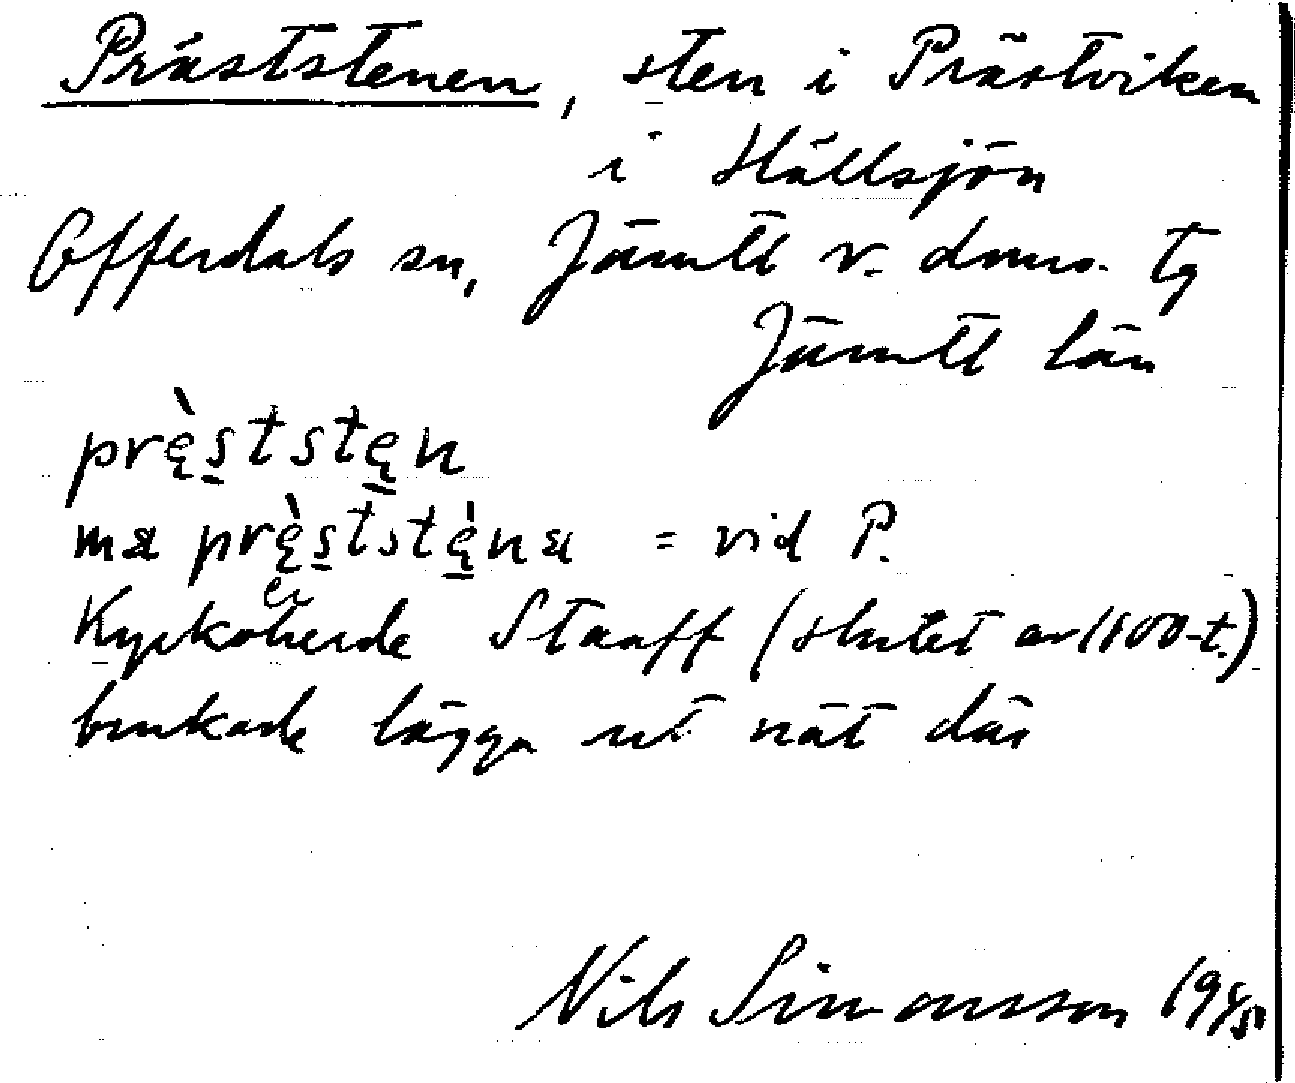 Präststenen, sten i Prästviken
i Hällsjön
Offerdals sn, Jämtl v. doms. tg
Jämtl län
prę̀s̱tstę̱n
ma prę̀s̱tstę̱̀na = vid P.
Kyrkoherde Staaff (slutet av 1800-t.)
brukade lägga ut nät där
Nils Simonsson